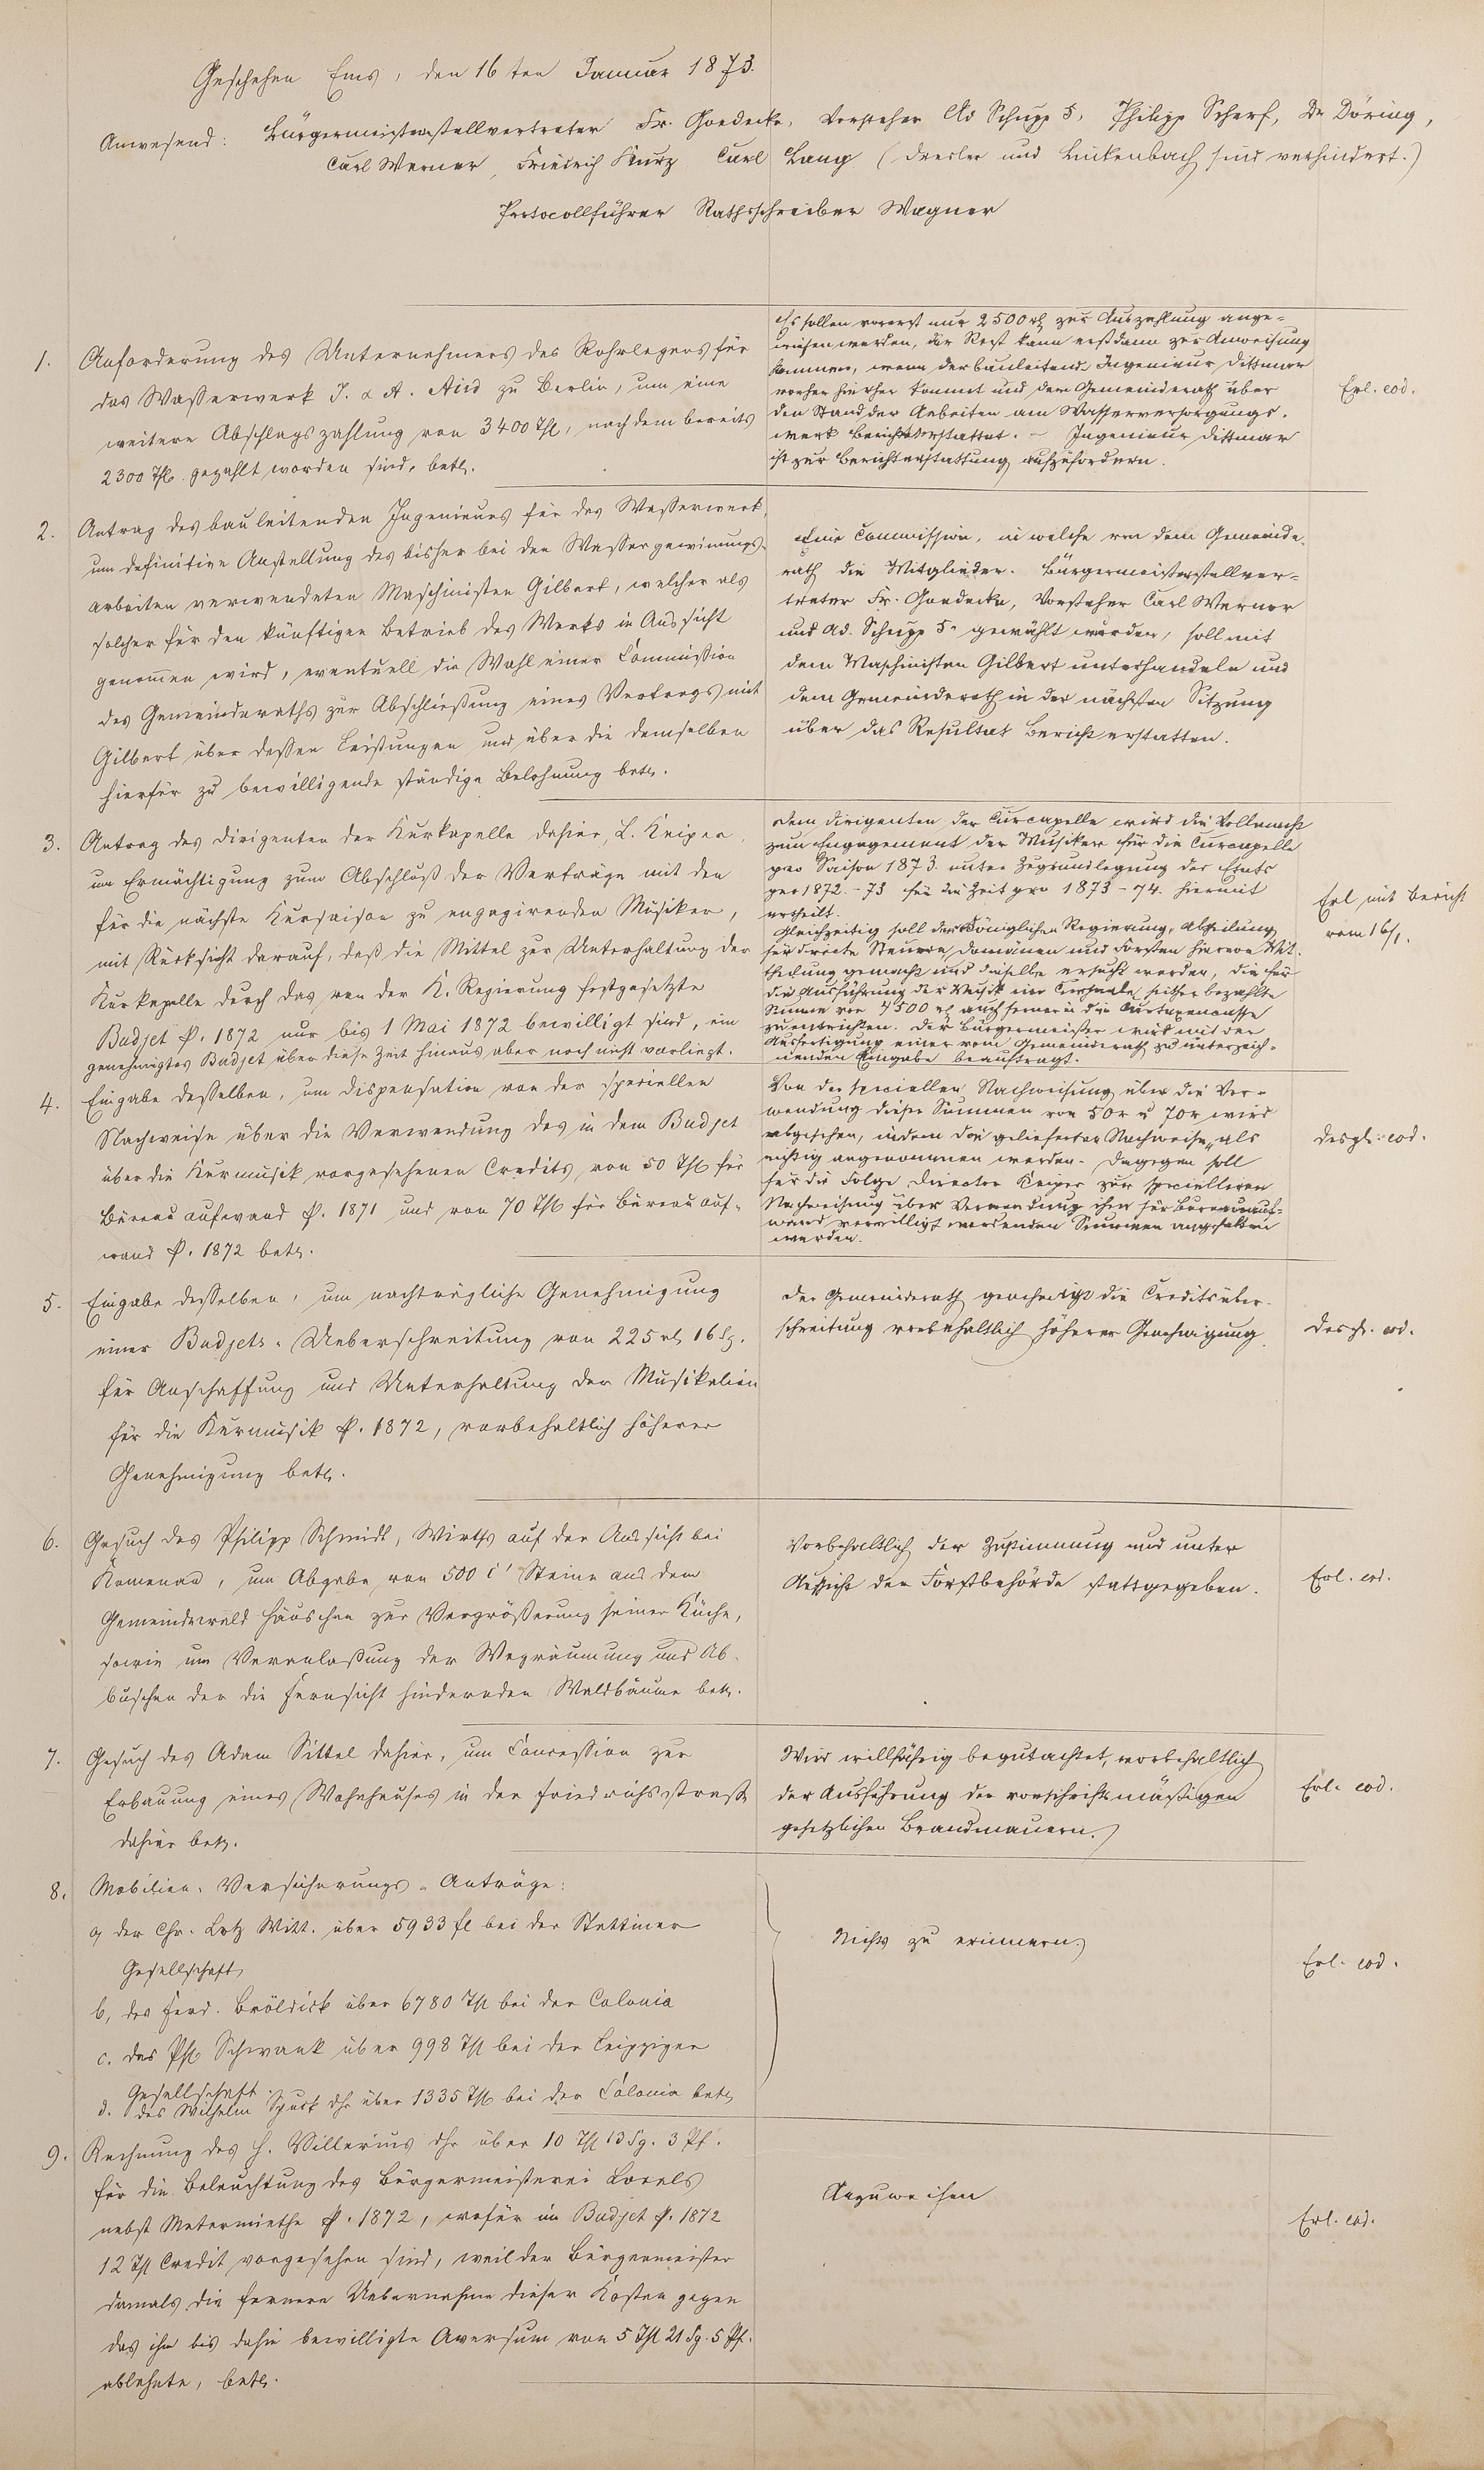 Geschehen Ems, den 16ten Januar 1873.
Anwesend: Bürgermeisterstellvertreter Fr. Goedecke, Vorsteher Ad Schupp 5, Philipp Scherf, Dr Döring,
Carl Werner, Friedrich Kurz Carl Lang (Dresler und Linkenbach sind verhindert.)
Protocollführer Rathsschreiber Wagner
1. Anforderung des Unternehmers des Rohrlegens für
das Wasserwerk J. & A. Aird zu Berlin, um eine
weitere Abschlagszahlung von 3400 Thl, nachdem bereits
2300 Thl. gezahlt worden sind, betr.
Es sollen vorerst nur 2500 rl zur Auszahlung ange-
wiesen werden, der Rest kann erst dann zur Anweisung
kommen, wenn der bauleitende Ingenieur Dittmar
vorher hierher kommt und dem Gemeinderath über
den Stand der Arbeiten am Wasserversorgungs-
werk Bericht erstattet. – Ingenieur Dittmar
ist zur Berichterstattung aufzufordern.
Erl. eod.
2. Antrag des bauleitenden Ingenieurs für das Wasserwerk,
um definitive Anstellung des bisher bei den Wassergewinnungs-
arbeiten verwendeten Maschinisten Gilbert, welcher als
solcher für den künftigen Betrieb des Werks in Aussicht
genommen wird, eventuell die Wahl einer Commission
des Gemeinderaths zur Abschließung eines Vertrags mit
Gilbert über dessen Leistungen und über die demselben
hierfür zu bewilligende ständige Belohnung betr.
Eine Commission, in welche von dem Gemeinde-
rath die Mitglieder Bürgermeisterstellver-
treter Fr. Goedecke, Vorsteher Carl Werner
und Ad. Schupp 5r gewählt wurden, soll mit
dem Maschinisten Gilbert unterhandeln und
dem Gemeinderath in der nächsten Sitzung
über das Resultat Bericht erstatten.
3. Antrag des Dirigenten der Kurkapelle dahier, L. Keiper,
um Ermächtigung zum Abschluß der Verträge mit den
für die nächste Kursaison zu engagirenden Musiker,
mit Rücksicht darauf, daß die Mittel zur Unterhaltung der
Kurkapelle durch das von der K. Regierung festgesetzte
Budjet p. 1872 nur bis 1 Mai 1872 bewilligt sind, ein
genehmigtes Budjet über diese Zeit hinaus aber noch nicht vorliegt.
Dem Dirigenten der Curcapelle wird die Vollmacht
zum Engagement der Musiker für die Curcapelle
pro Saison 1873 unter Zugrundlegung des Etats
pro 1872.–73 für die Zeit pro 1873–74. hiermit
ertheilt.
Gleichzeitig soll der Königlichen Regierung, Abtheilung
für directe Steuern, Domänen und Forsten hiervon Mit-
theilung gemacht und dieselbe ersucht werden, die für
die Ausführung der Musik im Cursaale seither bezahlte
Summe von 4500 rl auch ferner in die Curtaxencasse
zu entrichten. Der Bürgermeister wird mit der
Ausfertigung einer vom Gemeinderath zu unterzeich-
nenden Eingabe beauftragt.
Erl mit Bericht
vom 16/1.
4. Eingabe desselben, um Dispensation von der speciellen
Nachweise über die Verwendung des in dem Budjet
über die Kurmusik vorgesehenen Credits von 50 Thl für
Büreauaufwand p. 1871 und von 70 Thl für Büreauauf-
wand p. 1872 betr.
Von der speciellen Nachweisung über die Ver-
wendung dieser Summen von 50 r u 70 r wird
abgesehen, indem die gelieferten Nachweise als
richtig angenommen werden. Dagegen soll
für die Folge Director Keiper zur speciellen
Nachweisung über Verwendung ihm für Bureauauf-
wand verwilligt werdenden Summen angehalten
werden.
Desgl. eod.
5. Eingabe desselben, um nachträgliche Genehmigung
einer Budjets-Ueberschreitung von 225 rl 16 Sg.
für Anschaffung und Unterhaltung der Musikalien
für die Kurmusik p. 1872, vorbehaltlich höherer
Genehmigung betr.
Der Gemeinderath genehmigt die Creditsüber-
schreitung vorbehaltlich höherer Genehmigung.
Desgl. eod.
6. Gesuch des Philipp Schmidt, Wirths auf der Aussicht bei
Kemenau, um Abgabe von 500 c' Steine aus dem
Gemeindewald Häuschen zur Vergrößerung seiner Küche,
sowie um Veranlaßung der Wegräumung und Ab-
büschen der die Fernsicht hindernden Waldbäume betr.
Vorbehaltlich der Zustimmung und unter
Aufsicht der Forstbehörde stattgegeben.
Erl. eod.
7. Gesuch des Adam Sittel dahier, um Concession zur
Erbauung eines Wohnhauses in der Friedrichsstraße
dahier betr.
Wird willfährig begutachtet, vorbehaltlich
der Ausführung der vorschriftsmäßigen
gesetzlichen Brandmauern.
Erl. eod.
8. Mobilien-Versicherungs-Anträge:
a, der Chr. Lotz Witt. über 5933 fl bei der Stettiner
Gesellschaft
b, des Ferd. Bröldick über 6780 Thl bei der Colonia
c. des Ph Schwank über 998 Thl bei der Leipziger
Gesellschaft.
d. des Wilhelm Spurk dhr über 1335 Thl bei der Colonia betr
Nichts zu erinnern.
Erl. eod.
9. Rechnung des H. Villerius dhr über 10 Thl 13 Sg. 3 Pf.
für die Beleuchtung des Bürgermeisterei Locals
nebst Metermiethe p. 1872, wofür im Budjet p. 1872
12 Thl Credit vorgesehen sind, weil der Bürgermeister
damals die fernere Uebernahme dieser Kosten gegen
das ihm bis dahin bewilligte Aversum von 5 Thl 21 Sg. 5 Pf.
ablehnte, betr.
Anzuweisen
Erl. eod.